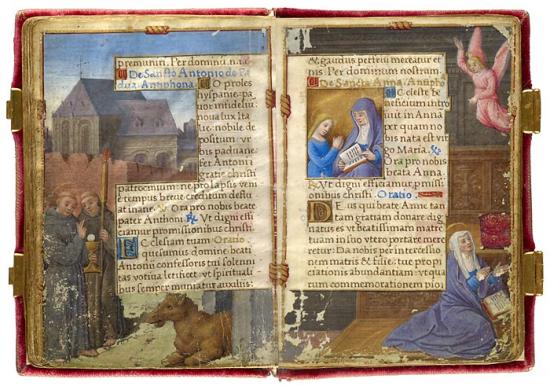 premuniri. Per dominu. nr̄m
De Sancto Antonio de Pa
dua. Antiphona.
O proles
hyspanie, pa
uor infideliu.
noua lux Ita
lie: nobile de
positum ur
bis paduane.
fer Antoni
gratie christi
patrocinium: ne prolapsis veni
e tempus breve creditum deflu
at inane. Ora pro nobis beate
pater Anthoni. Vt digni effici
amur promissionibus christi.
Ecclesiam tuam Oratio.
quesumus domine: beati
Antonii confessoris tui solenni
tas votiua letificet: vt spirituali
bus semper muniatur auxiliis:
& gaudiis perfrui mereatur et
nis. Per dominum nostrum.
De Sancta Anna. Antiphona
Celeste be
neficium intro
iuit in Anna
per quam no
bis nata est vir
go Maria.
Ora pro nobis
beata Anna.
Vt digni efficiamur, promissi
onibus christi. Oratio.
Deus qui beate Anne tan
tam gratiam donare dig
natus es vt beatissimam matre
tuam in suo vtero portare mere
retur: Da nobis per intercessio
nem matris & filie, tue propi
ciationis abundantiam: vt qua
rum commemorationem pio